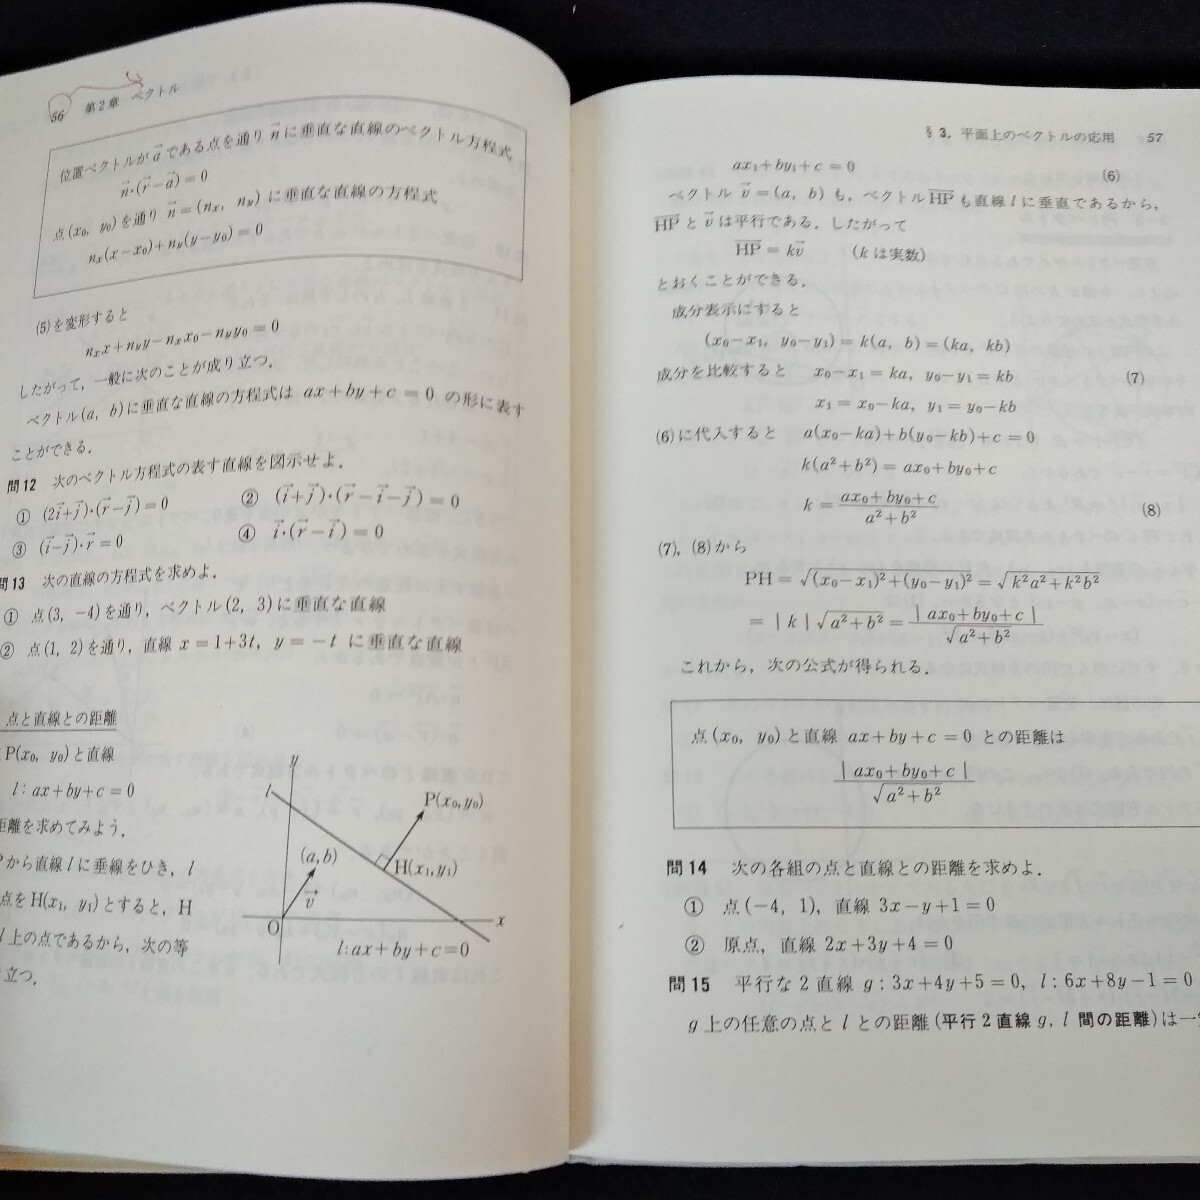 56 第2章 ベクトル
位置ベクトルが a⃗ である点を通り n⃗ に垂直な直線のベクトル方程式
n⃗·(r⃗−a⃗)=0
点(x₀, y₀)を通り n⃗=(nₓ, n_y) に垂直な直線の方程式
nₓ(x−x₀)+n_y(y−y₀)=0
(5)を変形すると
nₓx+n_yy−nₓx₀−n_yy₀=0
したがって，一般に次のことが成り立つ．
ベクトル(a, b)に垂直な直線の方程式は ax+by+c=0 の形に表す
ことができる．
問12 次のベクトル方程式の表す直線を図示せよ．
① (2i⃗+j⃗)·(r⃗−j⃗)=0 ② (i⃗+j⃗)·(r⃗−i⃗−j⃗)=0
③ (i⃗−j⃗)·r⃗=0 ④ i⃗·(r⃗−i⃗)=0
問13 次の直線の方程式を求めよ．
① 点(3, −4)を通り，ベクトル(2, 3)に垂直な直線
② 点(1, 2)を通り，直線 x=1+3t, y=−t に垂直な直線
点と直線との距離
P(x₀, y₀)と直線
l: ax+by+c=0
距離を求めてみよう．
Pから直線 l に垂線をひき，l
点をH(x₁, y₁)とすると，H
l 上の点であるから，次の等
立つ．
y
l
P(x₀, y₀)
(a, b)
H(x₁, y₁)
v⃗
O
x
l: ax+by+c=0
§3．平面上のベクトルの応用 57
ax₁+by₁+c=0 (6)
ベクトル v⃗=(a, b) も，ベクトル HP⃗ も直線 l に垂直であるから，
HP⃗ と v⃗ は平行である．したがって
HP⃗=kv⃗ (k は実数)
とおくことができる．
成分表示にすると
(x₀−x₁, y₀−y₁)=k(a, b)=(ka, kb)
成分を比較すると x₀−x₁=ka, y₀−y₁=kb (7)
x₁=x₀−ka, y₁=y₀−kb
(6)に代入すると a(x₀−ka)+b(y₀−kb)+c=0
k(a²+b²)=ax₀+by₀+c
k=(ax₀+by₀+c)/(a²+b²) (8)
(7), (8)から
PH=√((x₀−x₁)²+(y₀−y₁)²)=√(k²a²+k²b²)
=|k|√(a²+b²)=|ax₀+by₀+c|/√(a²+b²)
これから，次の公式が得られる．
点(x₀, y₀)と直線 ax+by+c=0 との距離は
|ax₀+by₀+c|/√(a²+b²)
問14 次の各組の点と直線との距離を求めよ．
① 点(−4, 1), 直線 3x−y+1=0
② 原点，直線 2x+3y+4=0
問15 平行な2直線 g: 3x+4y+5=0, l: 6x+8y−1=0
g 上の任意の点と l との距離(平行2直線 g, l 間の距離)は一